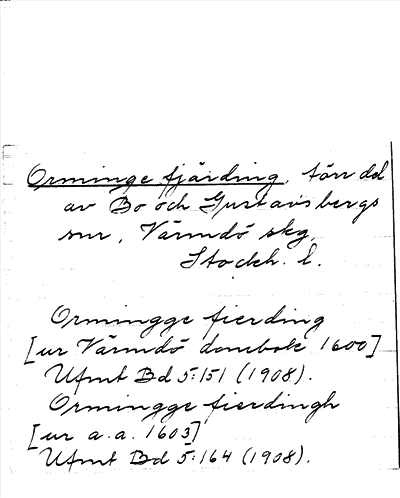 Orminge fjärding, törr del
av Bo och Gustavsbergs
snr, Värmdö skg,
Stockh. l.
Ormingge fierding
[ur Värmdö dombok 1600]
Ufmt Bd 5:151 (1908).
Ormingge fierdingh
[ur a.a. 1603]
Ufmt Bd 5:164 (1908).